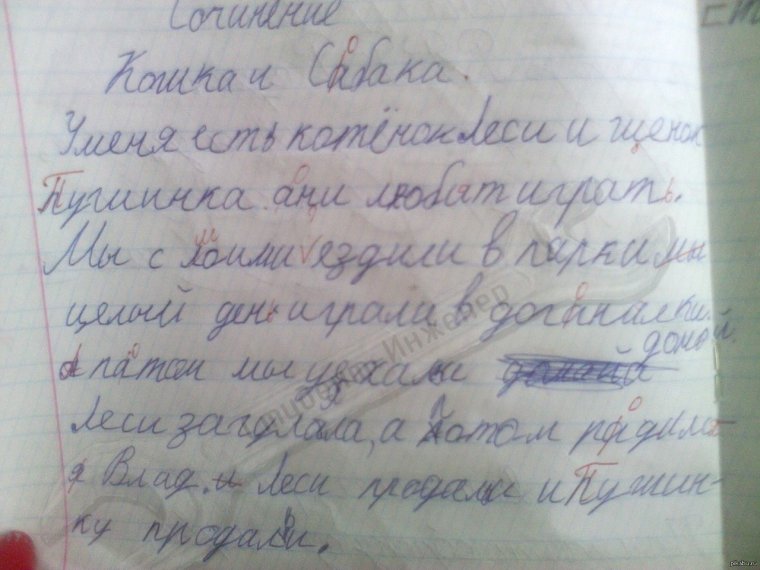 Сочинение
Кошка и Сабака.
У меня есть котёнок Леси и щенок
Пушинка. ани любят играть.
Мы с ними ездили в парк и мы
целый день играли в доганалки.
А патом мы уехали домой.
Леси загуляла, а потом родилс
я Влад. и Леси продали и Пушин-
ку продали.